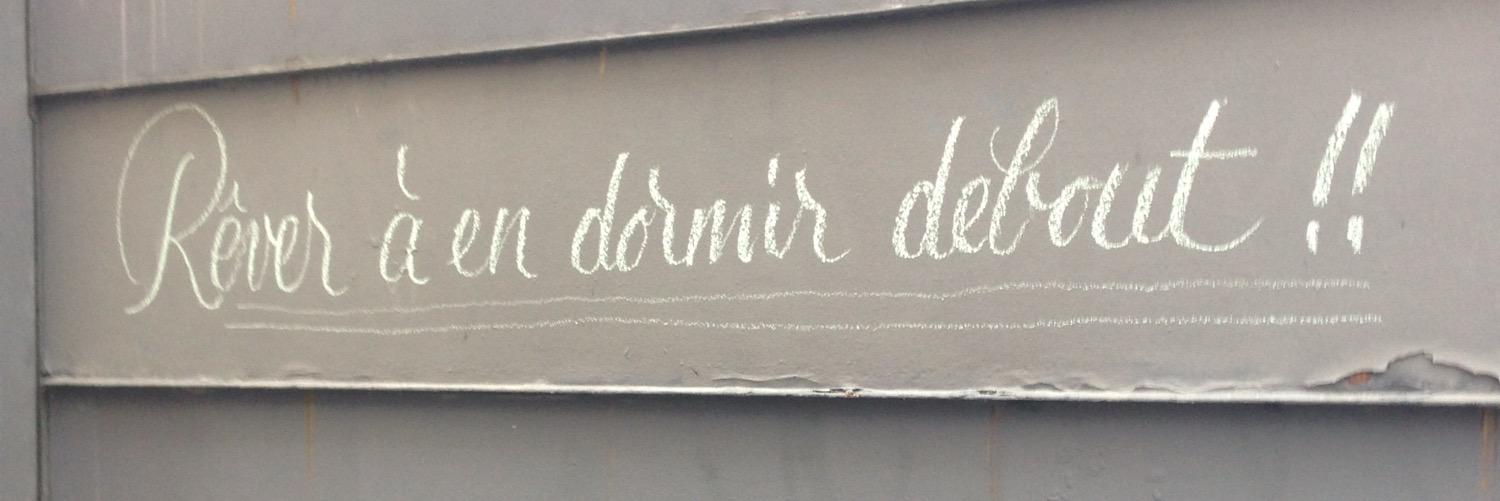 Rêver à en dormir debout !!